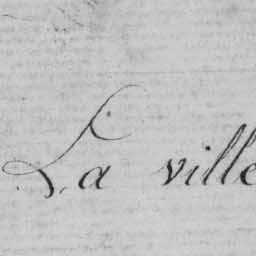 La ville